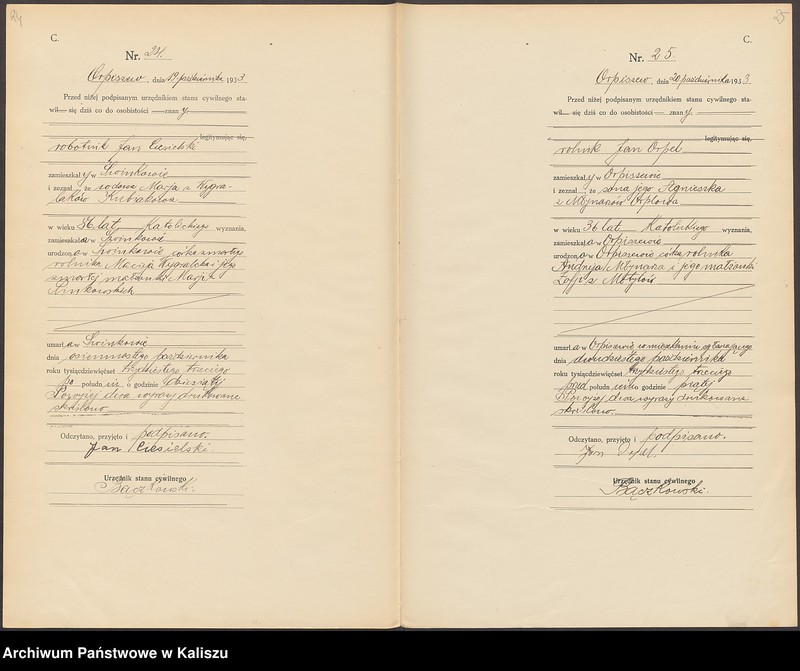 24
C.
Nr. 24.
Orpiszew, dnia 19 października 1933
Przed niżej podpisanym urzędnikiem stanu cywilnego sta-
wił się dziś co do osobistości znany
legitymując się,
robotnik Jan Ciesielski
zamieszkały w
i zeznał, że wdowa Marja z
Kubiaków
w wieku lat katolickiego wyznania,
zamieszkała w
urodzona w córka zmarłego
rolnika Macieja i jego
zmarłej małżonki Marji
umarła w
dnia osiemnastego października
roku tysiącdziewięćset trzydziestego trzeciego
po połudn iu o godzinie dziesiątej
Powyżej dwa wyrazy drukowane
skréślono
Odczytano, przyjęto i podpisano.
Jan Ciesielski
Urzędnik stanu cywilnego
Bączkowski.
25
C.
Nr. 25.
Orpiszew, dnia 20 października 1933
Przed niżej podpisanym urzędnikiem stanu cywilnego sta-
wił się dziś co do osobistości znany
legitymując się,
rolnik Jan Orpel
zamieszkały w Orpiszewie
i zeznał, że żona jego Agnieszka
z Młynarzów Orplowa
w wieku 36 lat katolickiego wyznania,
zamieszkała w Orpiszewie
urodzona w Orpiszewie córka rolnika
Andrzeja Młynarza i jego małżonki
Zofji z
umarła w Orpiszewie w mieszkaniu zeznającego
dnia dwudziestego października
roku tysiącdziewięćset trzydziestego trzeciego
przed połudn iem o godzinie piątej
Powyżej dwa wyrazy drukowane
skréślono.
Odczytano, przyjęto i podpisano.
Jan Orpel.
Urzędnik stanu cywilnego
Bączkowski.
Archiwum Państwowe w Kaliszu